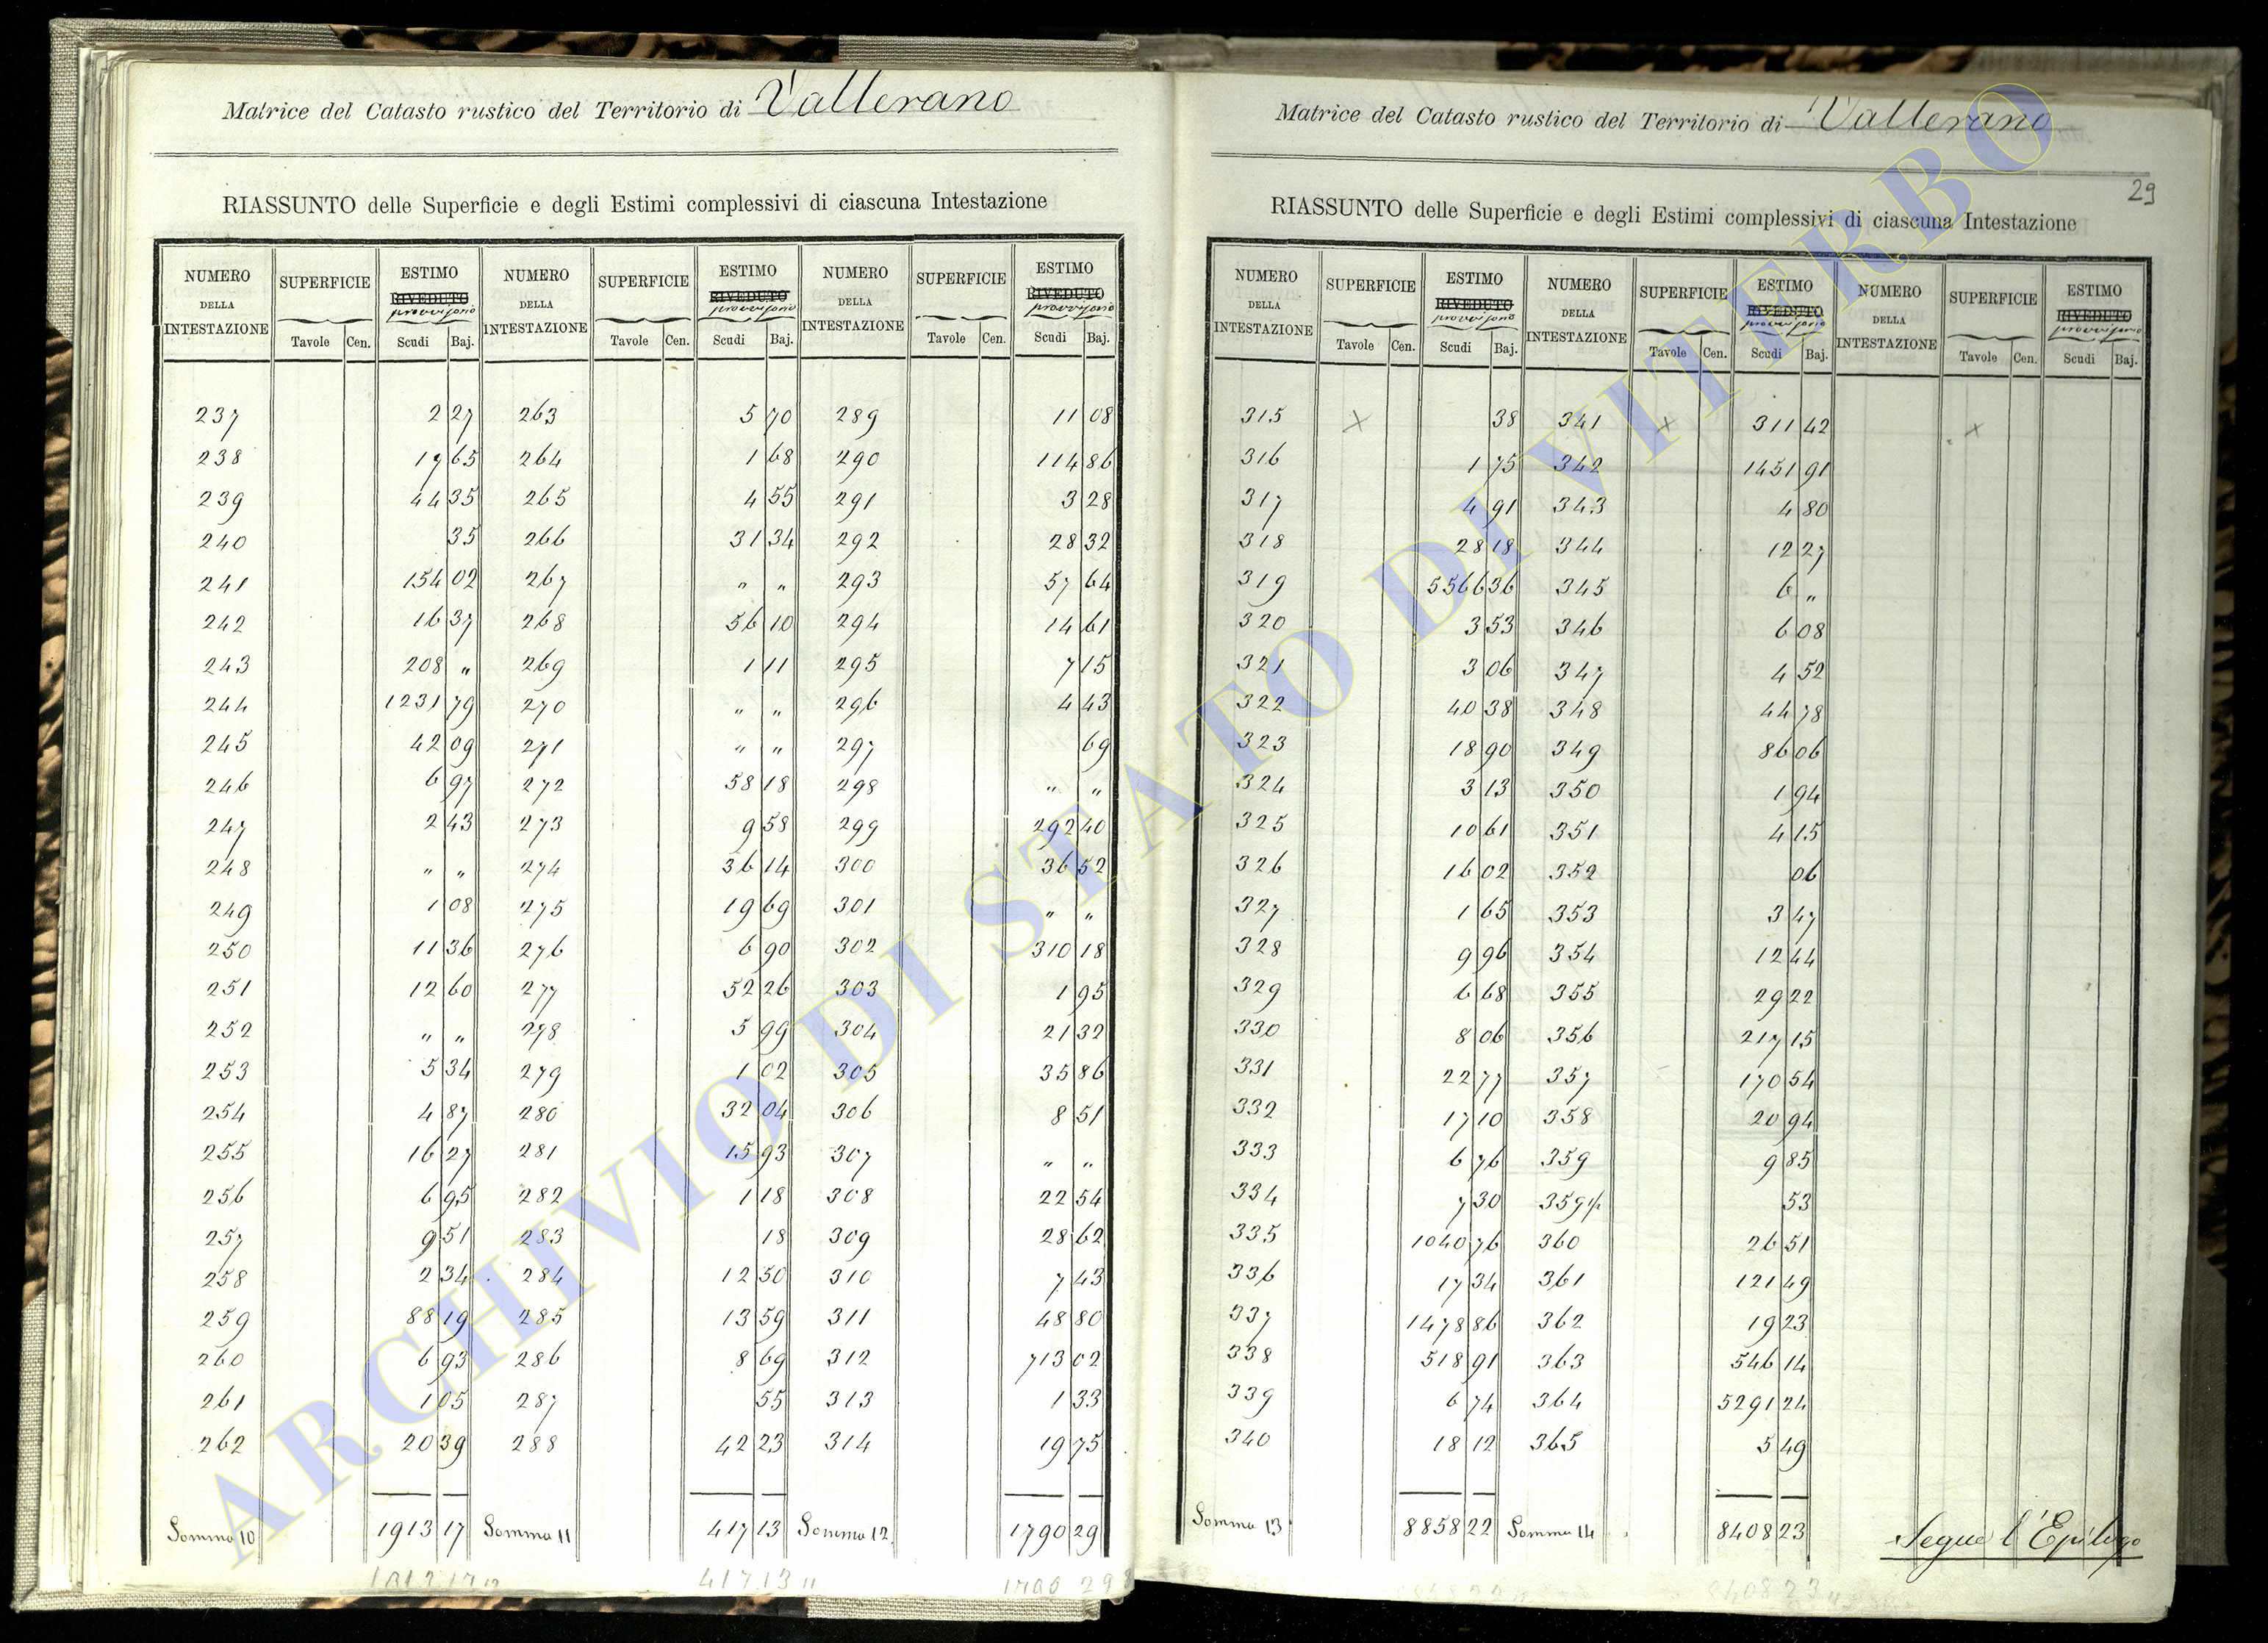 Matrice del Catasto rustico del Territorio di Vallerano
RIASSUNTO delle Superficie e degli Estimi complessivi di ciascuna Intestazione
NUMERO DELLA INTESTAZIONE SUPERFICIE Tavole Cen. ESTIMO RIVEDUTO provvisorio Scudi Baj. NUMERO DELLA INTESTAZIONE SUPERFICIE Tavole Cen. ESTIMO RIVEDUTO provvisorio Scudi Baj. NUMERO DELLA INTESTAZIONE SUPERFICIE Tavole Cen. ESTIMO RIVEDUTO provvisorio Scudi Baj.
237 2 27 263 5 70 289 11 08
238 17 65 264 1 68 290 114 86
239 44 35 265 4 55 291 3 28
240 35 266 31 34 292 28 32
241 154 02 267 " " 293 57 64
242 16 37 268 56 10 294 14 61
243 208 " 269 1 11 295 7 15
244 1231 79 270 " " 296 4 43
245 42 09 271 " " 297 69
246 6 97 272 58 18 298 " "
247 2 43 273 9 58 299 292 40
248 " " 274 36 14 300 36 52
249 1 08 275 19 69 301 " "
250 11 36 276 6 90 302 310 18
251 12 60 277 52 26 303 1 95
252 " " 278 5 99 304 21 32
253 5 34 279 1 02 305 35 86
254 4 87 280 32 04 306 8 51
255 16 27 281 15 93 307 " "
256 6 95 282 1 18 308 22 54
257 9 51 283 18 309 28 62
258 2 34 284 12 50 310 7 43
259 88 19 285 13 59 311 48 80
260 6 93 286 8 69 312 713 02
261 1 05 287 55 313 1 33
262 20 39 288 42 23 314 19 75
Somma 10 1913 17 Somma 11 417 13 Somma 12 1790 29
417.13 "
Matrice del Catasto rustico del Territorio di Vallerano
29
RIASSUNTO delle Superficie e degli Estimi complessivi di ciascuna Intestazione
NUMERO DELLA INTESTAZIONE SUPERFICIE Tavole Cen. ESTIMO RIVEDUTO provvisorio Scudi Baj. NUMERO DELLA INTESTAZIONE SUPERFICIE Tavole Cen. ESTIMO RIVEDUTO provvisorio Scudi Baj. NUMERO DELLA INTESTAZIONE SUPERFICIE Tavole Cen. ESTIMO RIVEDUTO provvisorio Scudi Baj.
315 x 38 341 x 311 42 x
316 1 75 342 1451 91
317 4 91 343 4 80
318 28 18 344 12 27
319 5566 36 345 6 "
320 3 53 346 6 08
321 3 06 347 4 52
322 40 38 348 44 78
323 18 90 349 86 06
324 3 13 350 1 94
325 10 61 351 4 15
326 16 02 352 06
327 1 65 353 3 47
328 9 96 354 12 44
329 6 68 355 29 22
330 8 06 356 217 15
331 22 77 357 170 54
332 17 10 358 20 94
333 6 76 359 9 85
334 7 30 359 53
335 1040 76 360 26 51
336 17 34 361 121 49
337 1478 86 362 19 23
338 518 91 363 546 14
339 6 74 364 5291 24
340 18 12 365 5 49
Somma 13 8858 22 Somma 14 8408 23 Segue l'Epilogo
8408 23
ARCHIVIO DI STATO DI VITERBO